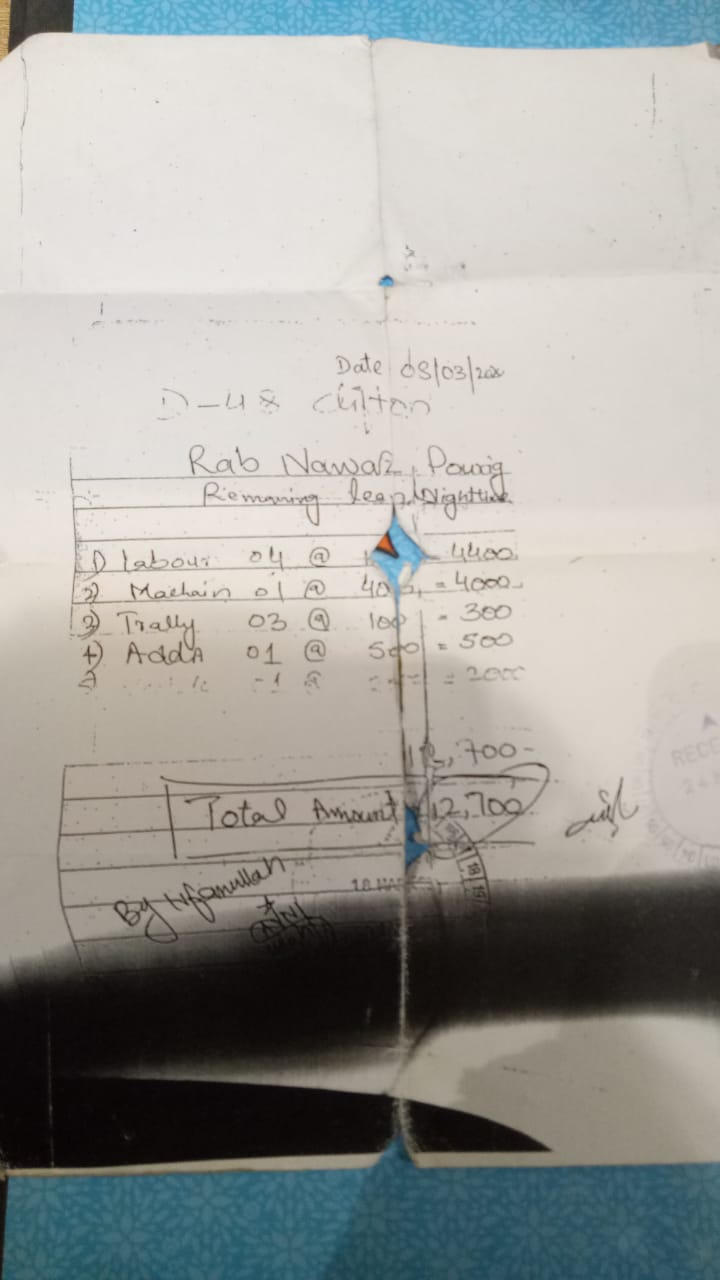 Date 08/03/202
D-48 Clifton
Rab Nawaz, Pourig
Riemaning leap Nighttime
1) labour 04 @ = 4400
2) Machain 01 @ 400 = 4000
3) Trally 03 @ 100 = 300
4) AddA 01 @ 500 = 500
-1 @ = 2000
12,700-
RECE
Total Amount 12,700
By Irfanullah
18 MAR